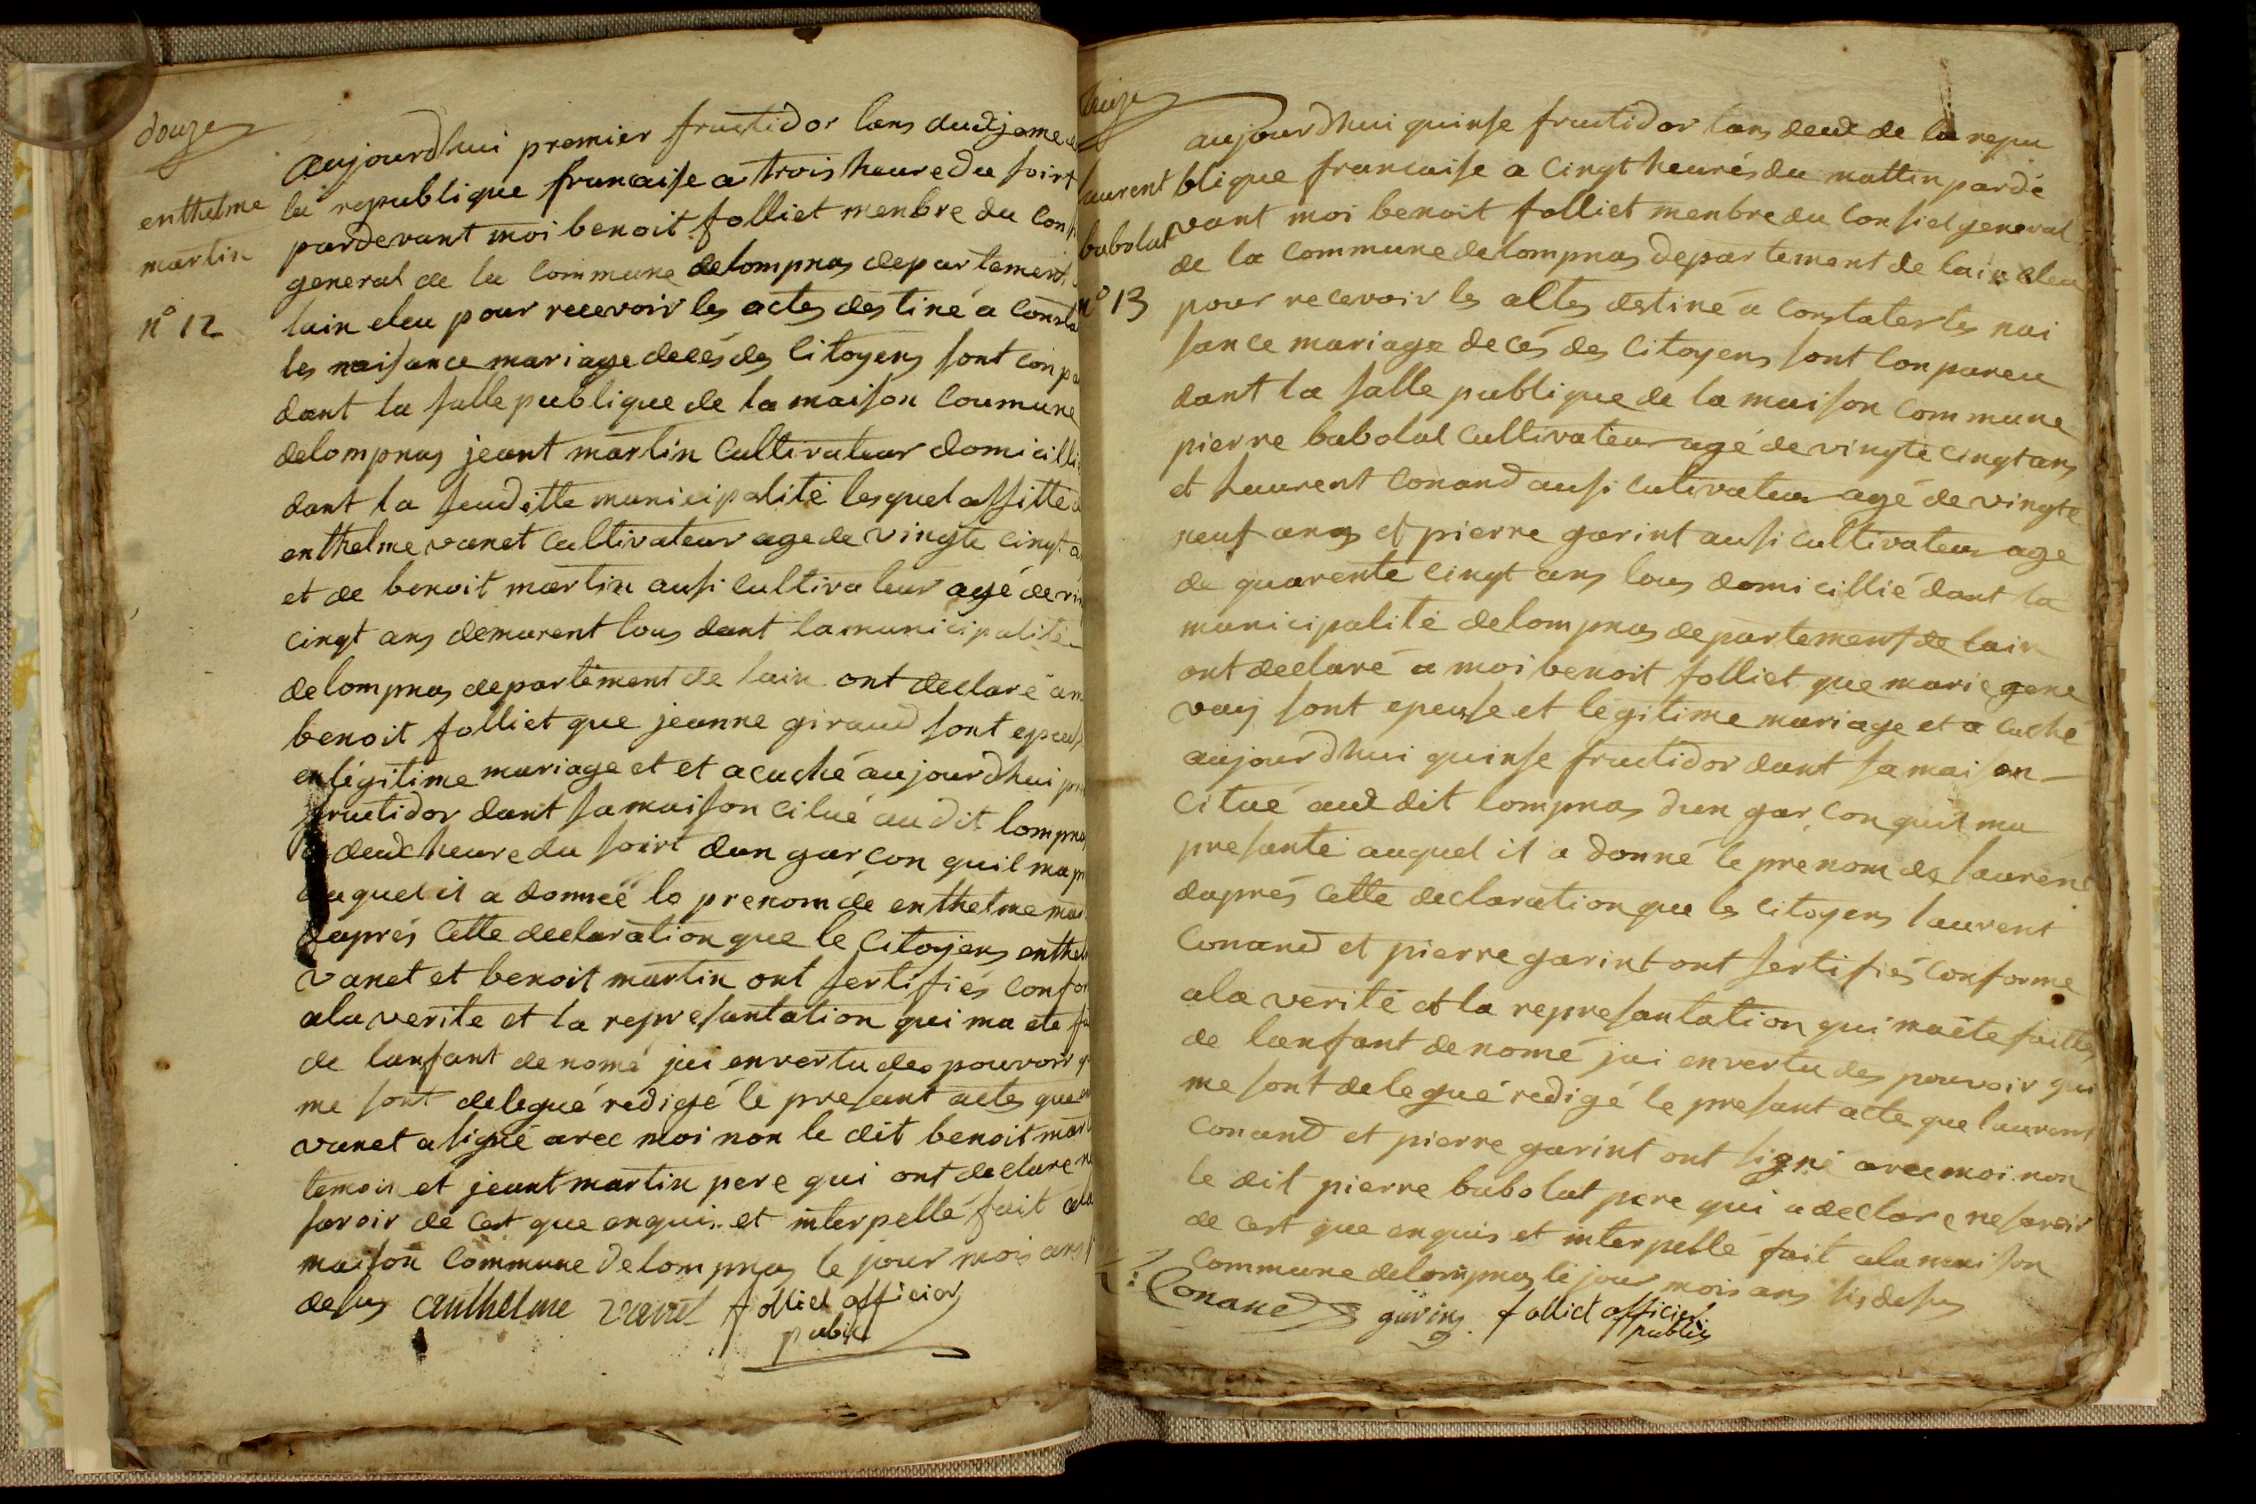 douze
enthelme
martin
n° 12
aujourdhui premier fructidor lans deuxjeme
la republique francaise a trois heure du soirt
pardevant moi benoit folliet menbre du
general de la commune delompnas departement
lain eleu pour recevoir les actes destiné a
les naisance mariage decés des citoyens sont
dant la salle publique de la maison coumune
delompnas jeant martin cultivateur
dant la seuditte municipalité lesquel
enthelme vanet cultivateur age de vingte cingt
et de benoit martin ausi cultivateur agé de
cingt ans demurent tous dant la municipalite
delompnas departement de lain ont declaré
benoit folliet que jeanne giraud sont
enlégitime mariage et et acuché aujourdhui
fructidor dant sa maison citué audit
a deux heure du soirt dun garcon quil
auquel il a donneé le prenom de enthelme
daprés cette declaration que le citoyens
vanet et benoit martin ont sertifiés
ala verite et la represantation qui ma ete
de lanfant denomé jai envertu des pouvoir
me sont delegué rédigé le presant actes que
vanet a signé avec moi non le dit benoit
temoin et jeant martin pere qui ont declare
savoir de cest que enquis et interpellé fait
maison commune delompnas le jour mois ans
desus anthelme vanet folliet officier
public
laurent
babolat
n° 13
aujourdhui quinse fructidor lans deux de la repu
blique francaise a cingt heurés du mattin pardé
vant moi benoit folliet menbre du consiel general
de la commune delompnas departement de lain eleu
pour recevoir les actes destiné a constater les nai
sance mariage decés des citoyens sont conpareu
dant la salle publique de la maison commune
pierre babolat cultivateur agé de vingte cingt ans
et laurent conand ausi cutivateur agé de vingte
neuf ans et pierre garint ausi cultivateur age
de quarente cingt ans tous domicillié dant la
municipalité delompnas departement de lain
ont declaré a moi benoit folliet que marie gene
vay sont epeuse et légitime mariage et a cuché
aujourdhui quinse fructidor dant sa maison
citué aux dit lompnas dun garcon quil ma
presanté auquel il a donné le prenom de laurent
daprés cette declaration que les citoyens laurent
conand et pierre garint ont sertifiés conforme
ala verité et la represantation qui ma éte faittes
de lanfant denomé jai envertu des pouvoir qui
me sont delegué redigé le presant acte que laurent
conand et pierre garint ont signé avec moi non
le dit pierre babolat pere qui a declare ne savoir
de cest que enquis et interpellé fait ala maison
commune delompnas le jour mois ans sis desus
Conand garin folliet officier
public